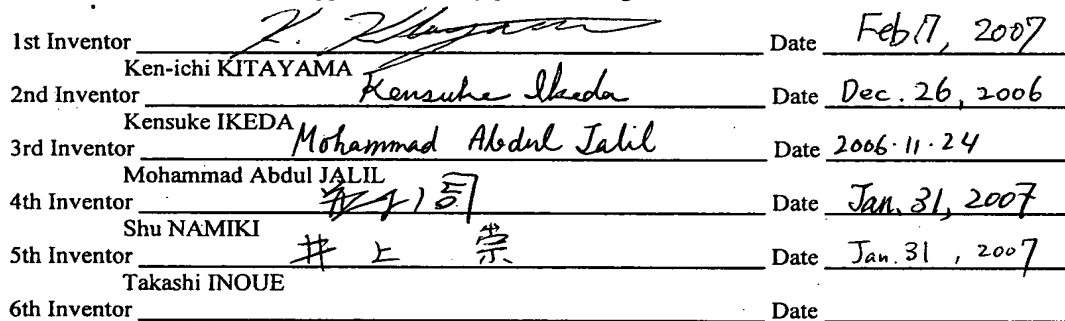 1st Inventor K. Kitayama Date Feb 17, 2007
Ken-ichi KITAYAMA
2nd Inventor Kensuke Ikeda Date Dec. 26, 2006
Kensuke IKEDA
3rd Inventor Mohammad Abdul Jalil Date 2006・11・24
Mohammad Abdul JALIL
4th Inventor 司 Date Jan. 31, 2007
Shu NAMIKI
5th Inventor 井上 崇 Date Jan. 31, 2007
Takashi INOUE
6th Inventor Date